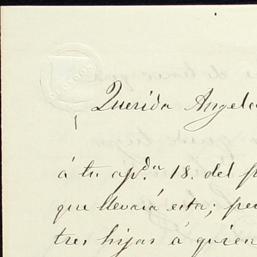 Querida Angela
á tu apda. 18. del p
que llevará esta; pe
tres hijas á quien